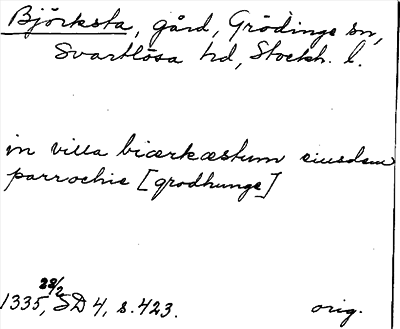 Björksta, gård, Grödinge sn,
Svartlösa hd, Stockh. l.
in villa biærkæstum eiusdem
parrochie [grodhunge]
1335, 28/2 SD 4, s. 423. orig.